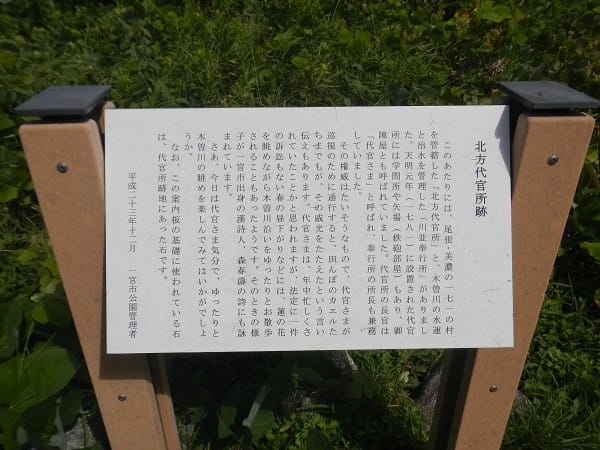 北方代官所跡
このあたりには、尾張、美濃の一七一の村
を管轄した「北方代官所」と、木曽川の水運
と治水を管理した「川並奉行所」がありまし
た。天明元年(一七八一)に設置された代官
所には学問所や矢場(鉄砲部屋)もあり、御
陣屋とも呼ばれていました。代官所の長官は
「代官さま」と呼ばれ、奉行所の所長も兼務
していました。
その権威はたいそうなもので、代官さまが
巡視のために通行すると、田んぼのカエルた
ちまでもが、その威光をたたえたという言い
伝えもあります。代官さまは、年中忙しくさ
れていたことかと思われますが、法定に一件
の訴訟もない春の昼下がりなどには、蓮の花
を眺めながら木曽川沿いをゆったりとお散歩
されることもあったようです。そのときの様
子が一宮市出身の漢詩人、森春濤の詩にも詠
まれています。
さあ、今日は代官さま気分で、ゆったりと
木曽川の眺めを楽しんでみてはいかがでしょ
うか。
なお、この案内板の基礎に使われている石
は、代官所跡地にあった石です。
平成二十三年十二月　一宮市公園管理者